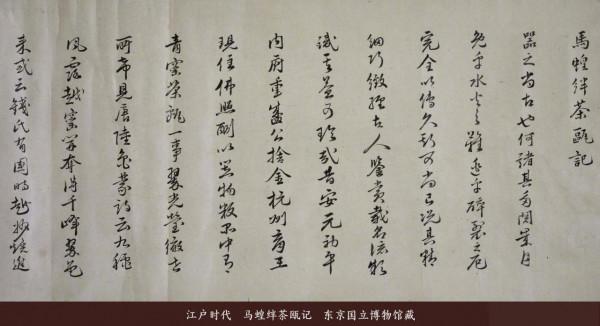 馬蝗絆茶甌記
器之尚古也何諸其多閱歲月
免乎水火之難逃乎碎裂之厄
完全以傳久斯可尚已況其精
細巧緻經古人鑒賞載名流題
識者益可珍哉昔安元初平
内府重盛公捨金杭州育王
現住佛照酬以器物數品中有
青窯茶甌一事翠光瑩徹世
所希見唐陸龜蒙詩云九秋
風露越窯開奪得千峰翠色
來或云錢氏有國時越州燒進
江户时代 马蝗绊茶瓯记 东京国立博物馆藏